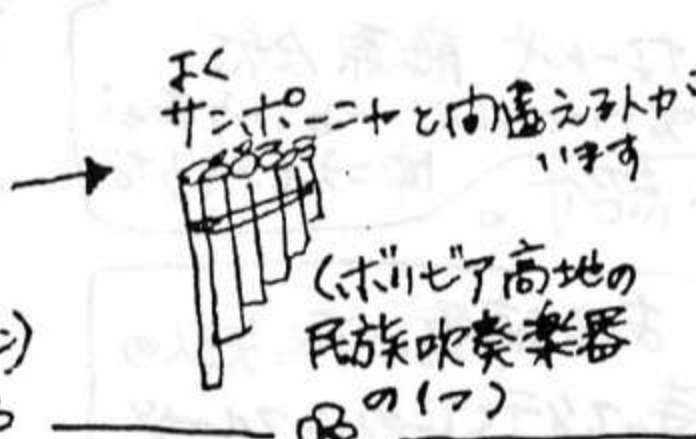 よく
サンポーニャと間違える人が
います
(ボリビア高地の
民族吹奏楽器
の1つ)